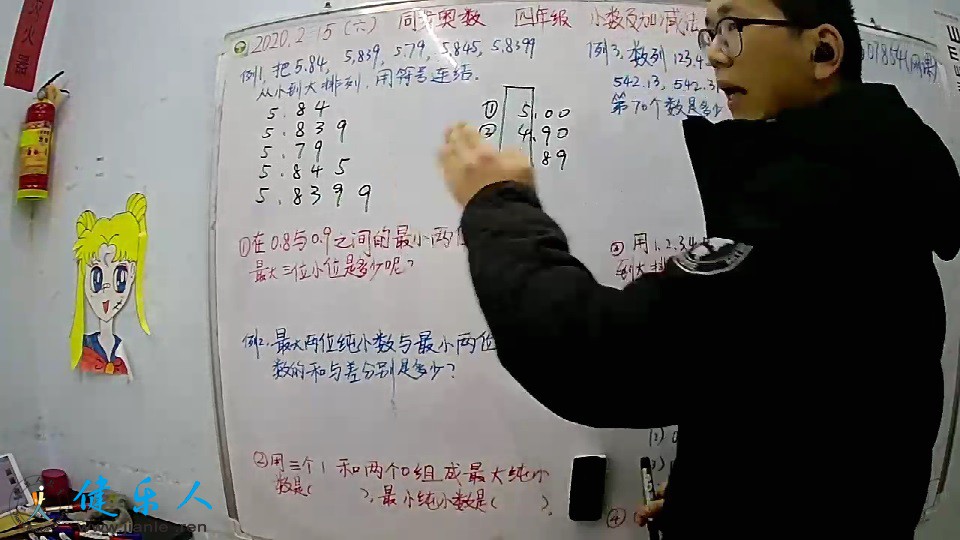 火器
2020.2.15(六) 同步奥数 四年级 小数及加减法
例1.把5.84, 5.839, 5.79, 5.845, 5.8399
从小到大排列,用符号连结.
5.84
5.839
5.79
5.845
5.8399
① 5.00
② 4.90
89
①在0.8与0.9之间的最小两位
最大三位小位是多少呢?
例2.最大两位纯小数与最小两位
数的和与差分别是多少?
②用三个1和两个0组成最大纯小
数是( ),最小纯小数是( )。
例3.数列123.4
542.13, 542.3
第70个数是多少
用1.2.3.4
到大排
④
健乐人